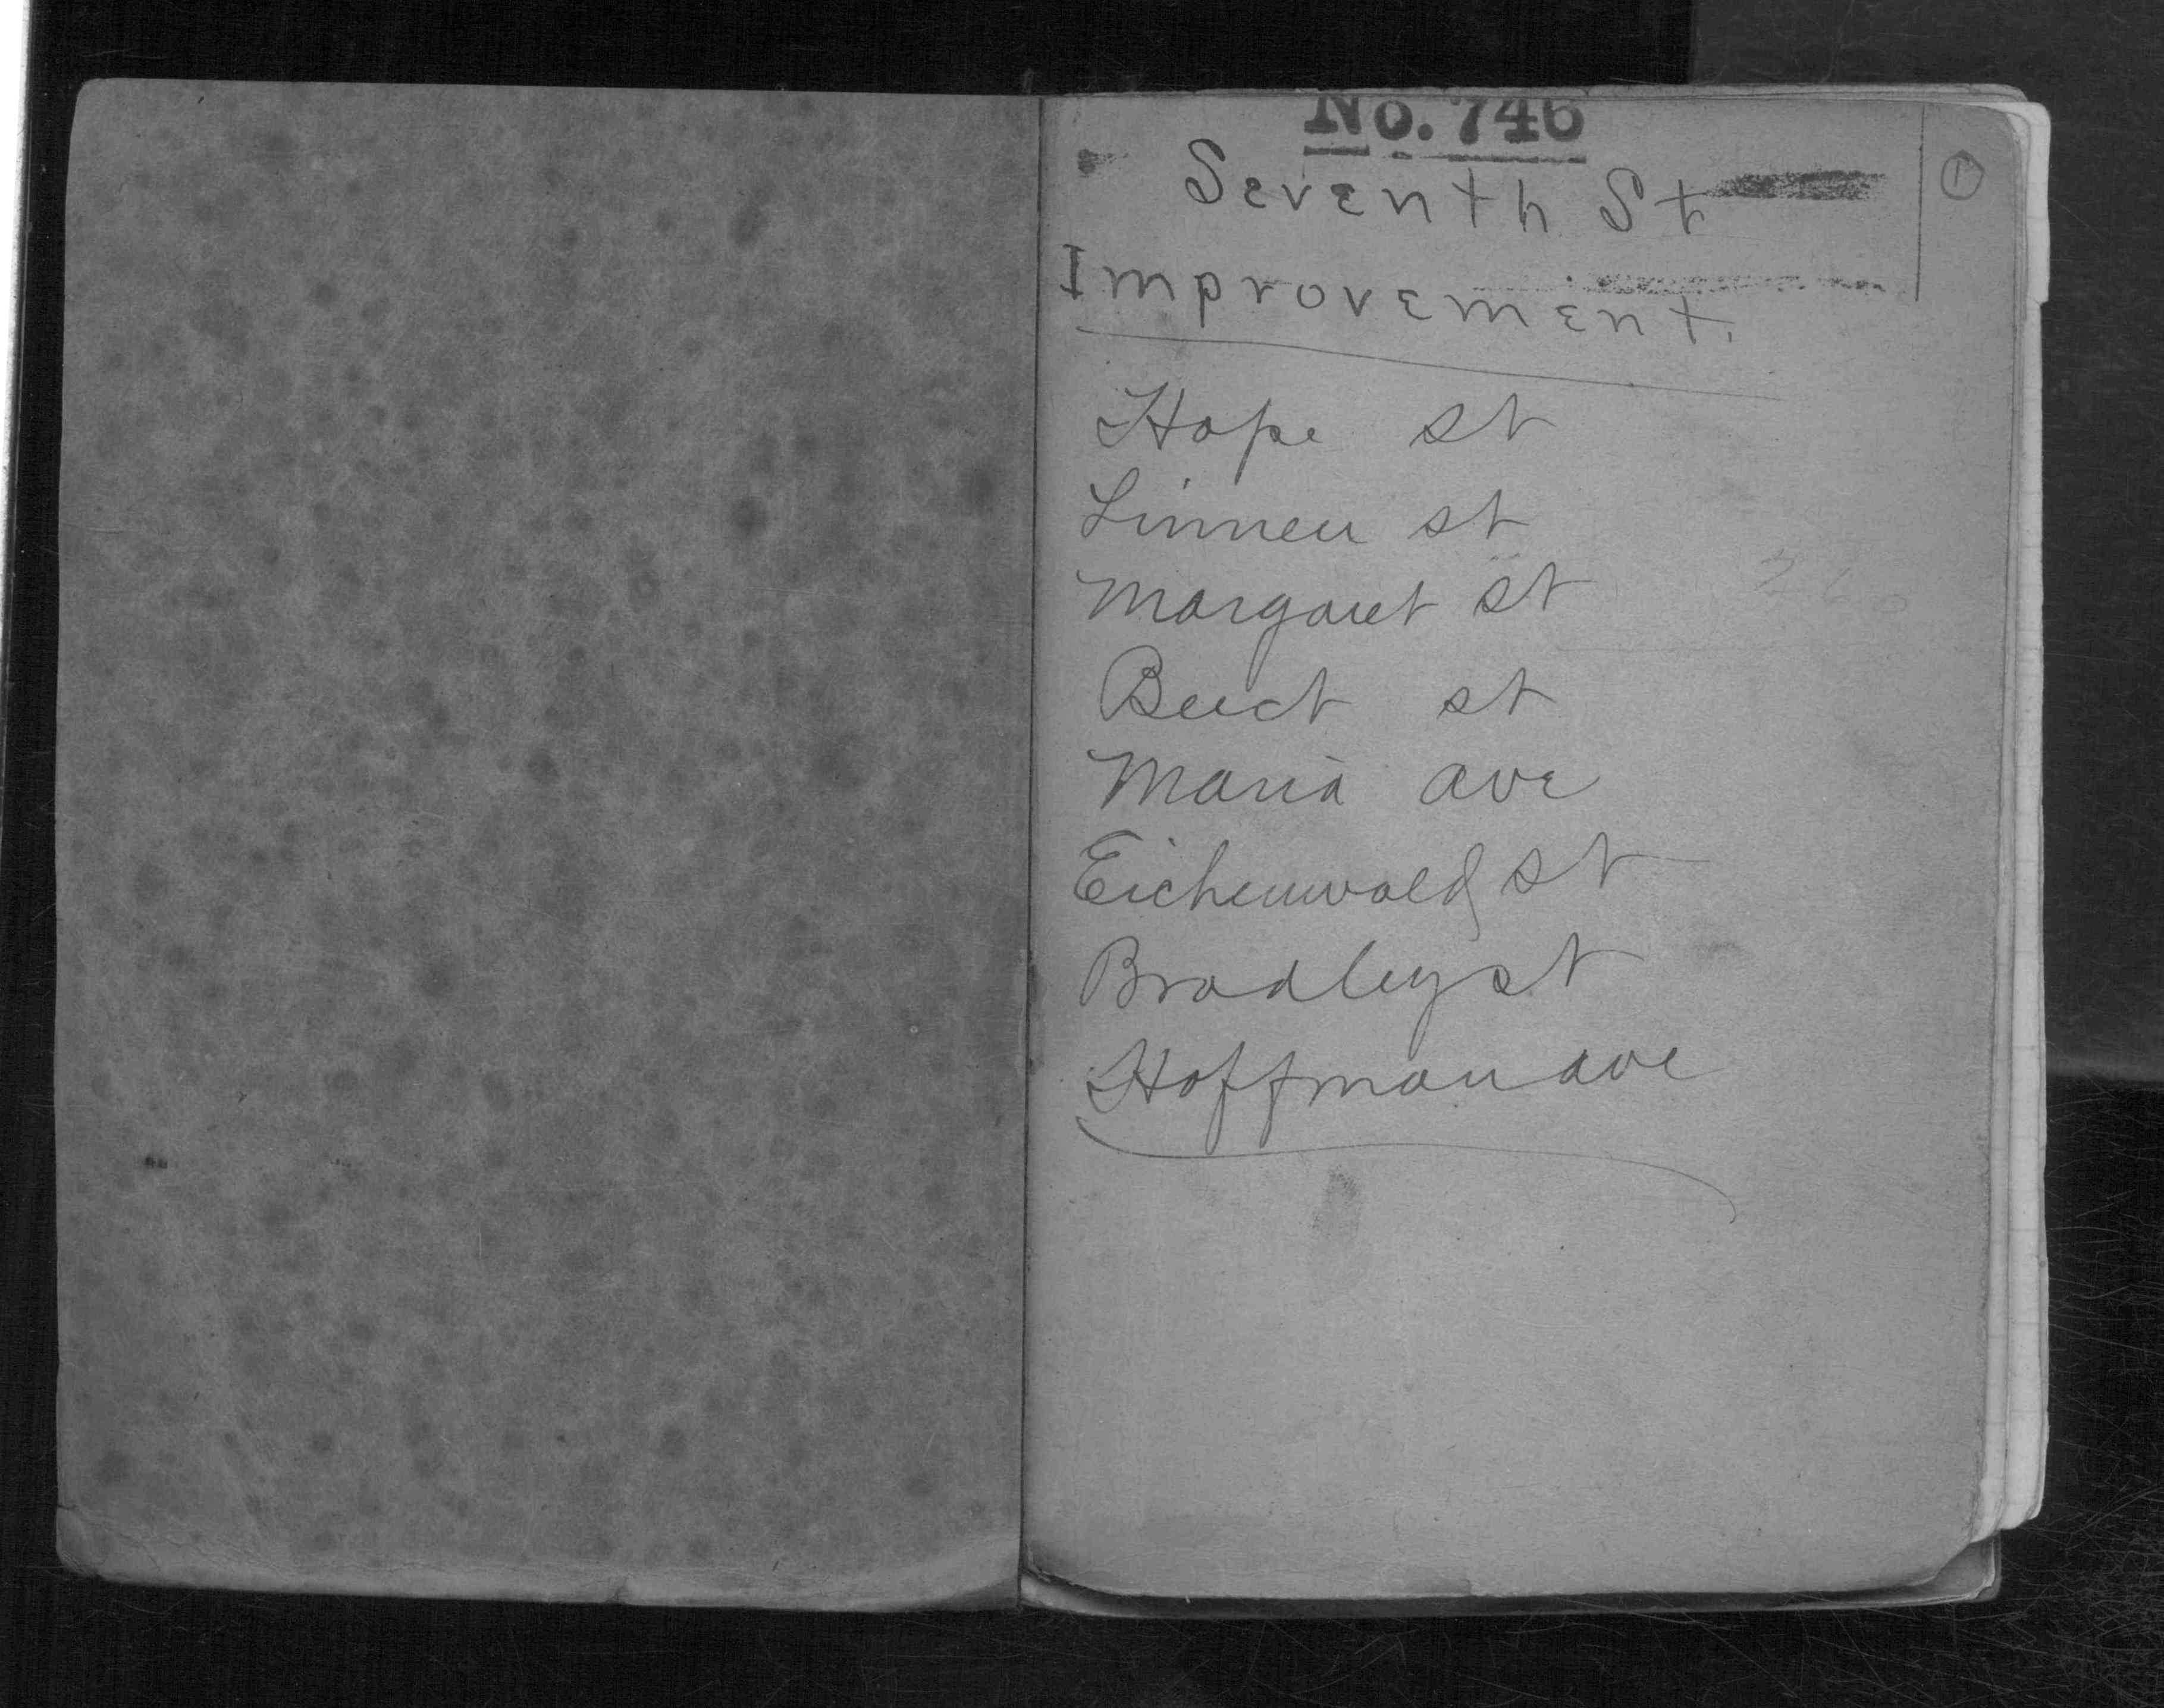 No. 746
①
Seventh St
Improvement.
Hope st
Linnen st
Margaret st
260
Beect st
Maria ave
Eichenwald st
Bradley st
Hoffman ave